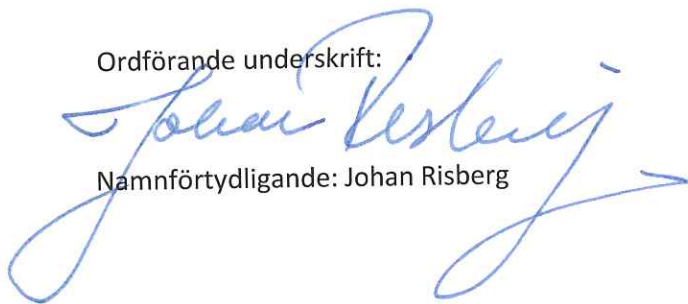 Ordförande underskrift:
Johan Risberg
Namnförtydligande: Johan Risberg